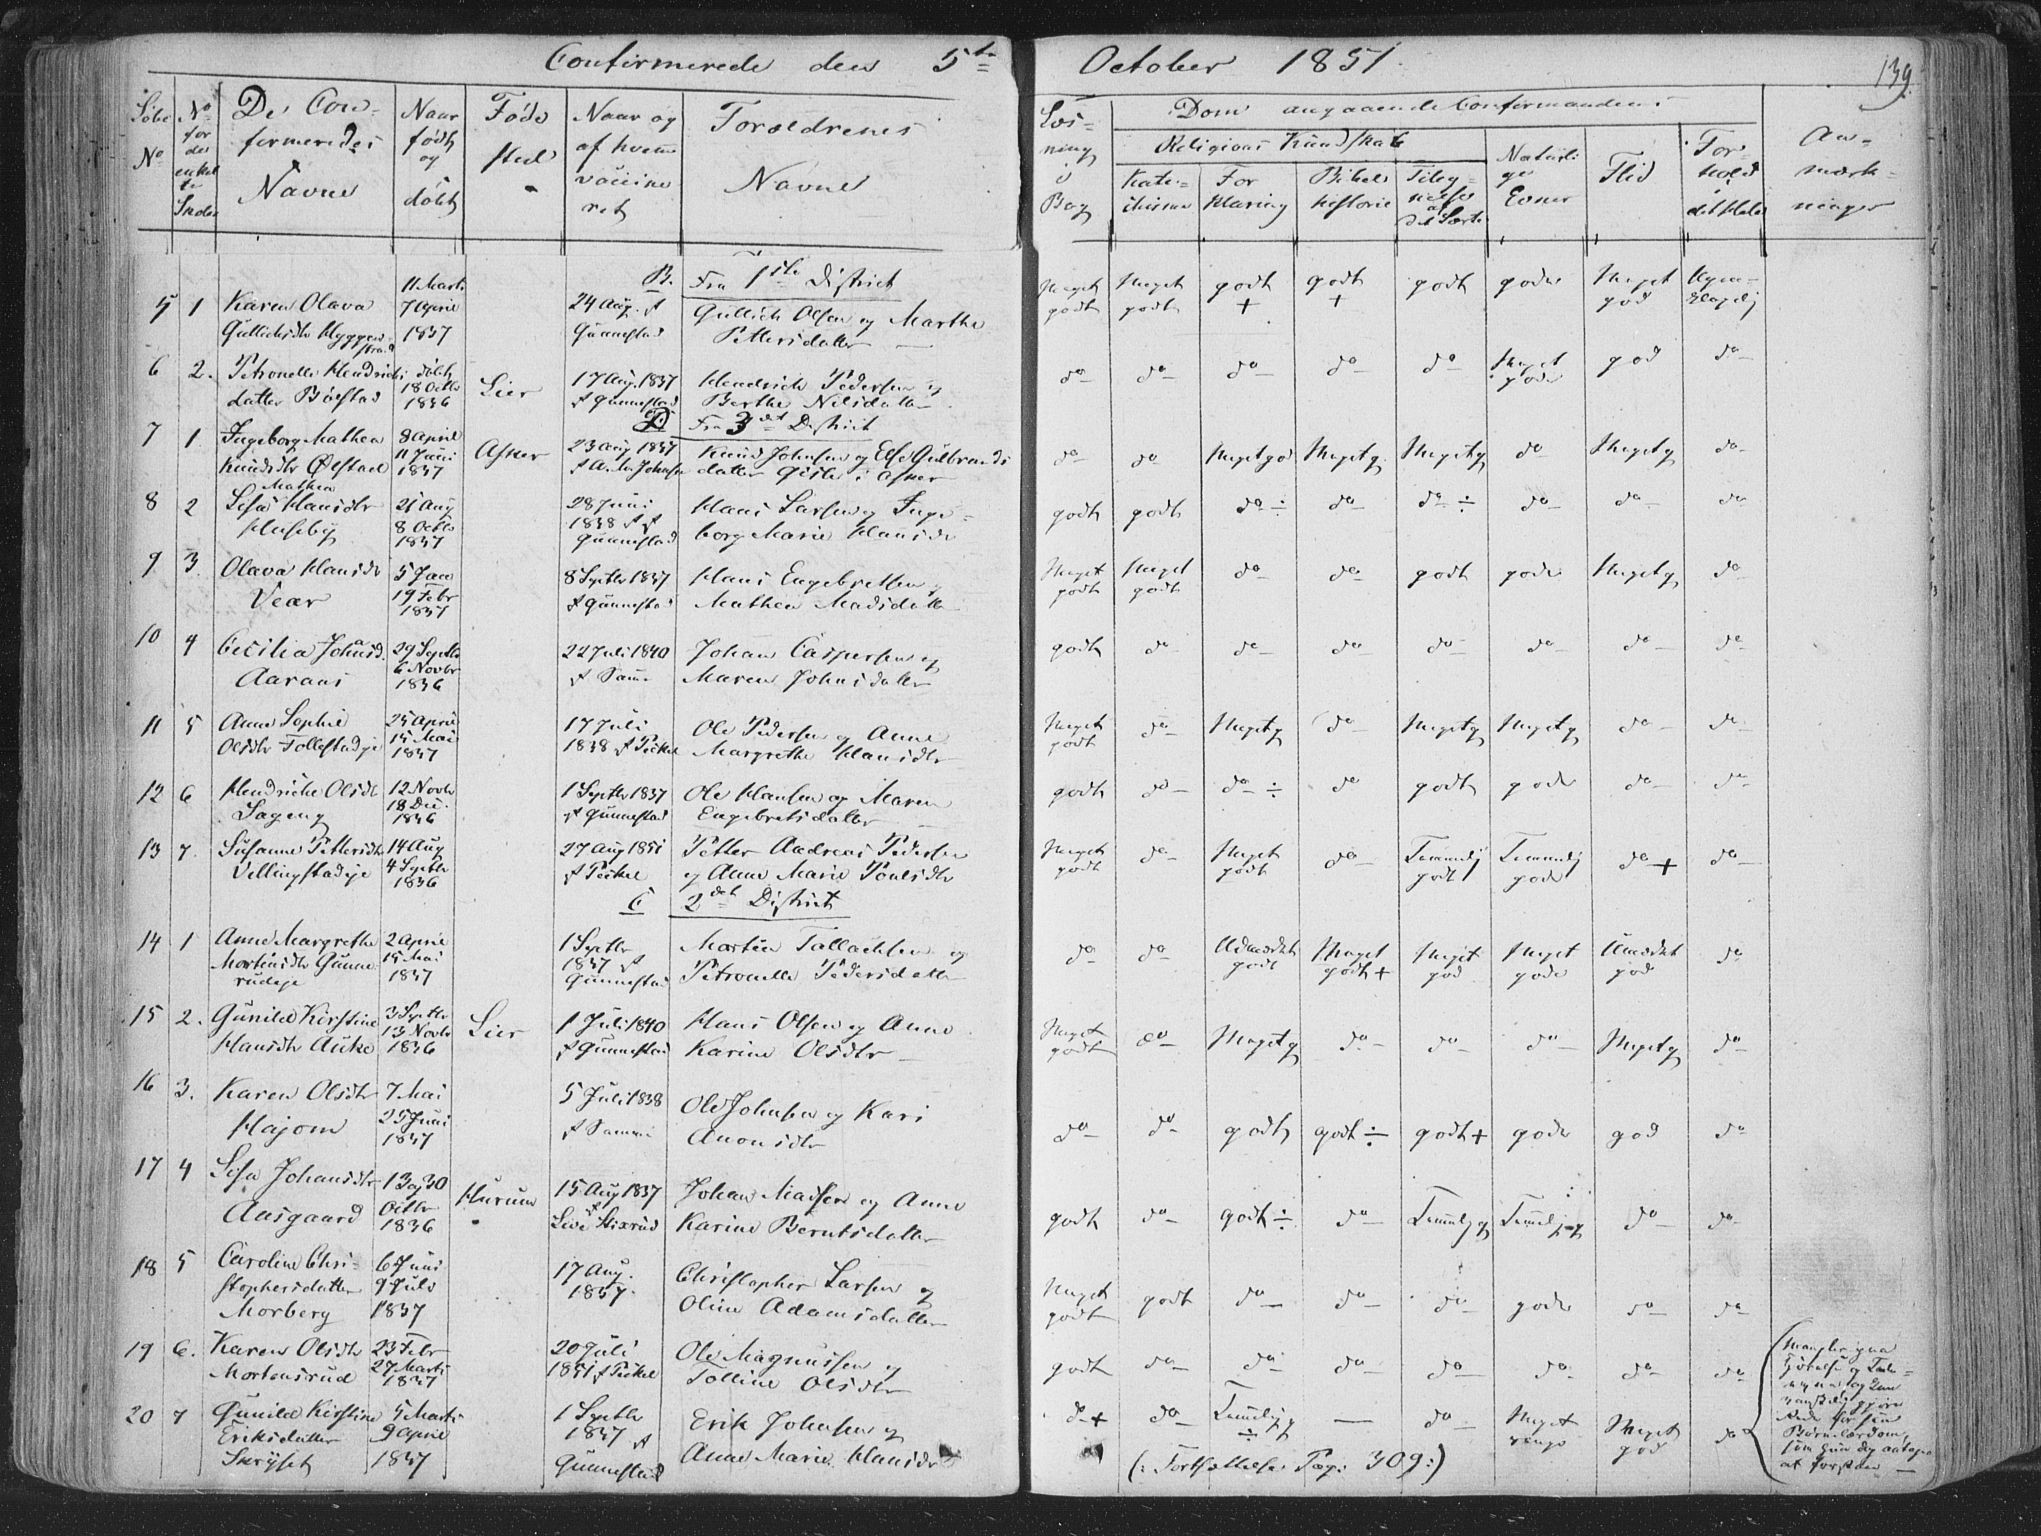 Confirmerede den 5te October 1851.
139.
Løbe No
No for det enkelte
De Confirmeredes Navne
Naar født og døbt
Føde sted
Naar og af hvem vaccineret
Forældrenes Navne
Læsning i Bog
Dom angaaende Confirmandens
Religions Kundskab
Katechisme
Forklaring
Bibelhistorie
Naturlige Evner
Flid
Forhold
Anmærkninger
B. Fra 1ste District
5 1 Karen Olava 11 Marts 7 April 1837 24 Aug. af Gunnestad Gullich Olsen og Marthe Pettersdatter
Meget godt Meget godt godt + godt + godt gode Meget god
6 2. Petronelle Hendrichsdatter Bølstad døbt 18 Octbr 1836 Lier 17 Aug. 1837 af Gunnestad Hendrich Pedersen og Berthe Nilsdatter
do do do do do Meget gode god do
D Fra 3det District
7 1 Ingeborg Mathea Knudsdtr Ølstad 8 April 11 Juni 1837 Asker 23 Aug 1837 Knud Johnsen og Else Gulbrandsdatter i Asker
do do Meget god Meget g. Meget g do Meget g do
8 2 Lisa Mathea Hansdtr Huseby 21 Aug 8 Octbr 1837 28 Juni 1838 af Gunnestad Hans Larsen og Ingeborg Marie Hansdtr
godt godt do ÷ do do ÷ do do do
9 3. Olava Hansdtr Vear 5 Jan 19 Febr 1837 8 Septbr 1837 af Gunnestad Hans Engebretsen og Mathea Madsdatter
Meget godt Meget godt do do godt gode Meget g do
10 4 Cecilia Johansd. Aaraas 29 Septbr 6 Novbr 1836 22 Juli 1840 af Samme Johan Caspersen og Maren Johnsdatter
godt do do do do do do do
11 5 Anne Sophie Olsdtr Follestadeje 25 April 15 Mai 1837 17 Juli 1838 af Peckel Ole Pedersen og Anne Margrethe Hansdtr
Meget godt do Meget g do Meget g Meget g do do
12 6 Hendriche Olsdtr Sageng 12 Novbr 18 Dec. 1836 1 Septbr 1837 af Gunnestad Ole Hansen og Maren Engebretsdatter
godt do do ÷ do godt gode do do
13 7. Susanne Pettersdtr Villingstadeje 14 Aug 4 Septbr 1836 27 Aug 1851 af Peckel Petter Andreas Pedersen og Anne Marie Poulsdtr
Meget godt do Meget godt do Temmelig godt Temmelig gode do + do
C 2det District
14 1 Anne Margrethe Mortensdtr Gunnerudeje 2 April 15 Mai 1837 1 Septbr 1837 af Gunnestad Morten Tallachsen og Petronelle Pedersdatter
do do Udmærket godt Meget godt + Meget god Meget gode Udmærket god do
15 2. Gunild Kirstine Hansdtr Auke 3 Septbr 13 Novbr 1836 Lier 1 Juli 1840 af Gunnestad Hans Olsen og Anne Karine Olsdtr
Meget godt do Meget g do do do Meget g do
16 3. Karen Olsdtr Højom 7 Mai 25 Juni 1837 5 Juli 1838 af Samme Ole Johnsen og Kari Anonsdtr
do do godt godt ÷ godt + gode god do
17 4 Lisa Johansdtr Aasgaard 1 og 30 Octbr 1836 Hurum 15 Aug 1837 af Live Stixrud Johan Madsen og Anne Karine Berntsdatter
godt do godt ÷ do Temmelig g Temmelig g do do
18 5 Caroline Christophersdatter Morberg 6 Juni 9 Juli 1837 17 Aug. 1837. Christopher Larsen og Oline Adamsdatter
Meget godt godt do do do gode do do
19 6. Karen Olsdtr Mortensrud 23 Febr 27 Marts 1837 20 Juli 1851 af Peckel Ole Magnussen og Tolline Olsdtr
godt do do do do do do do
20 7 Gunild Kirstine Eriksdatter Skryset 5 Marts 9 April 1837 1 Septbr 1837 af Gunnestad Erik Johnsen og Anne Marie Hansdtr
do + do Temmelig g ÷ — do Meget ringe Meget god do
(: Fortsættelse Pag: 309 :)